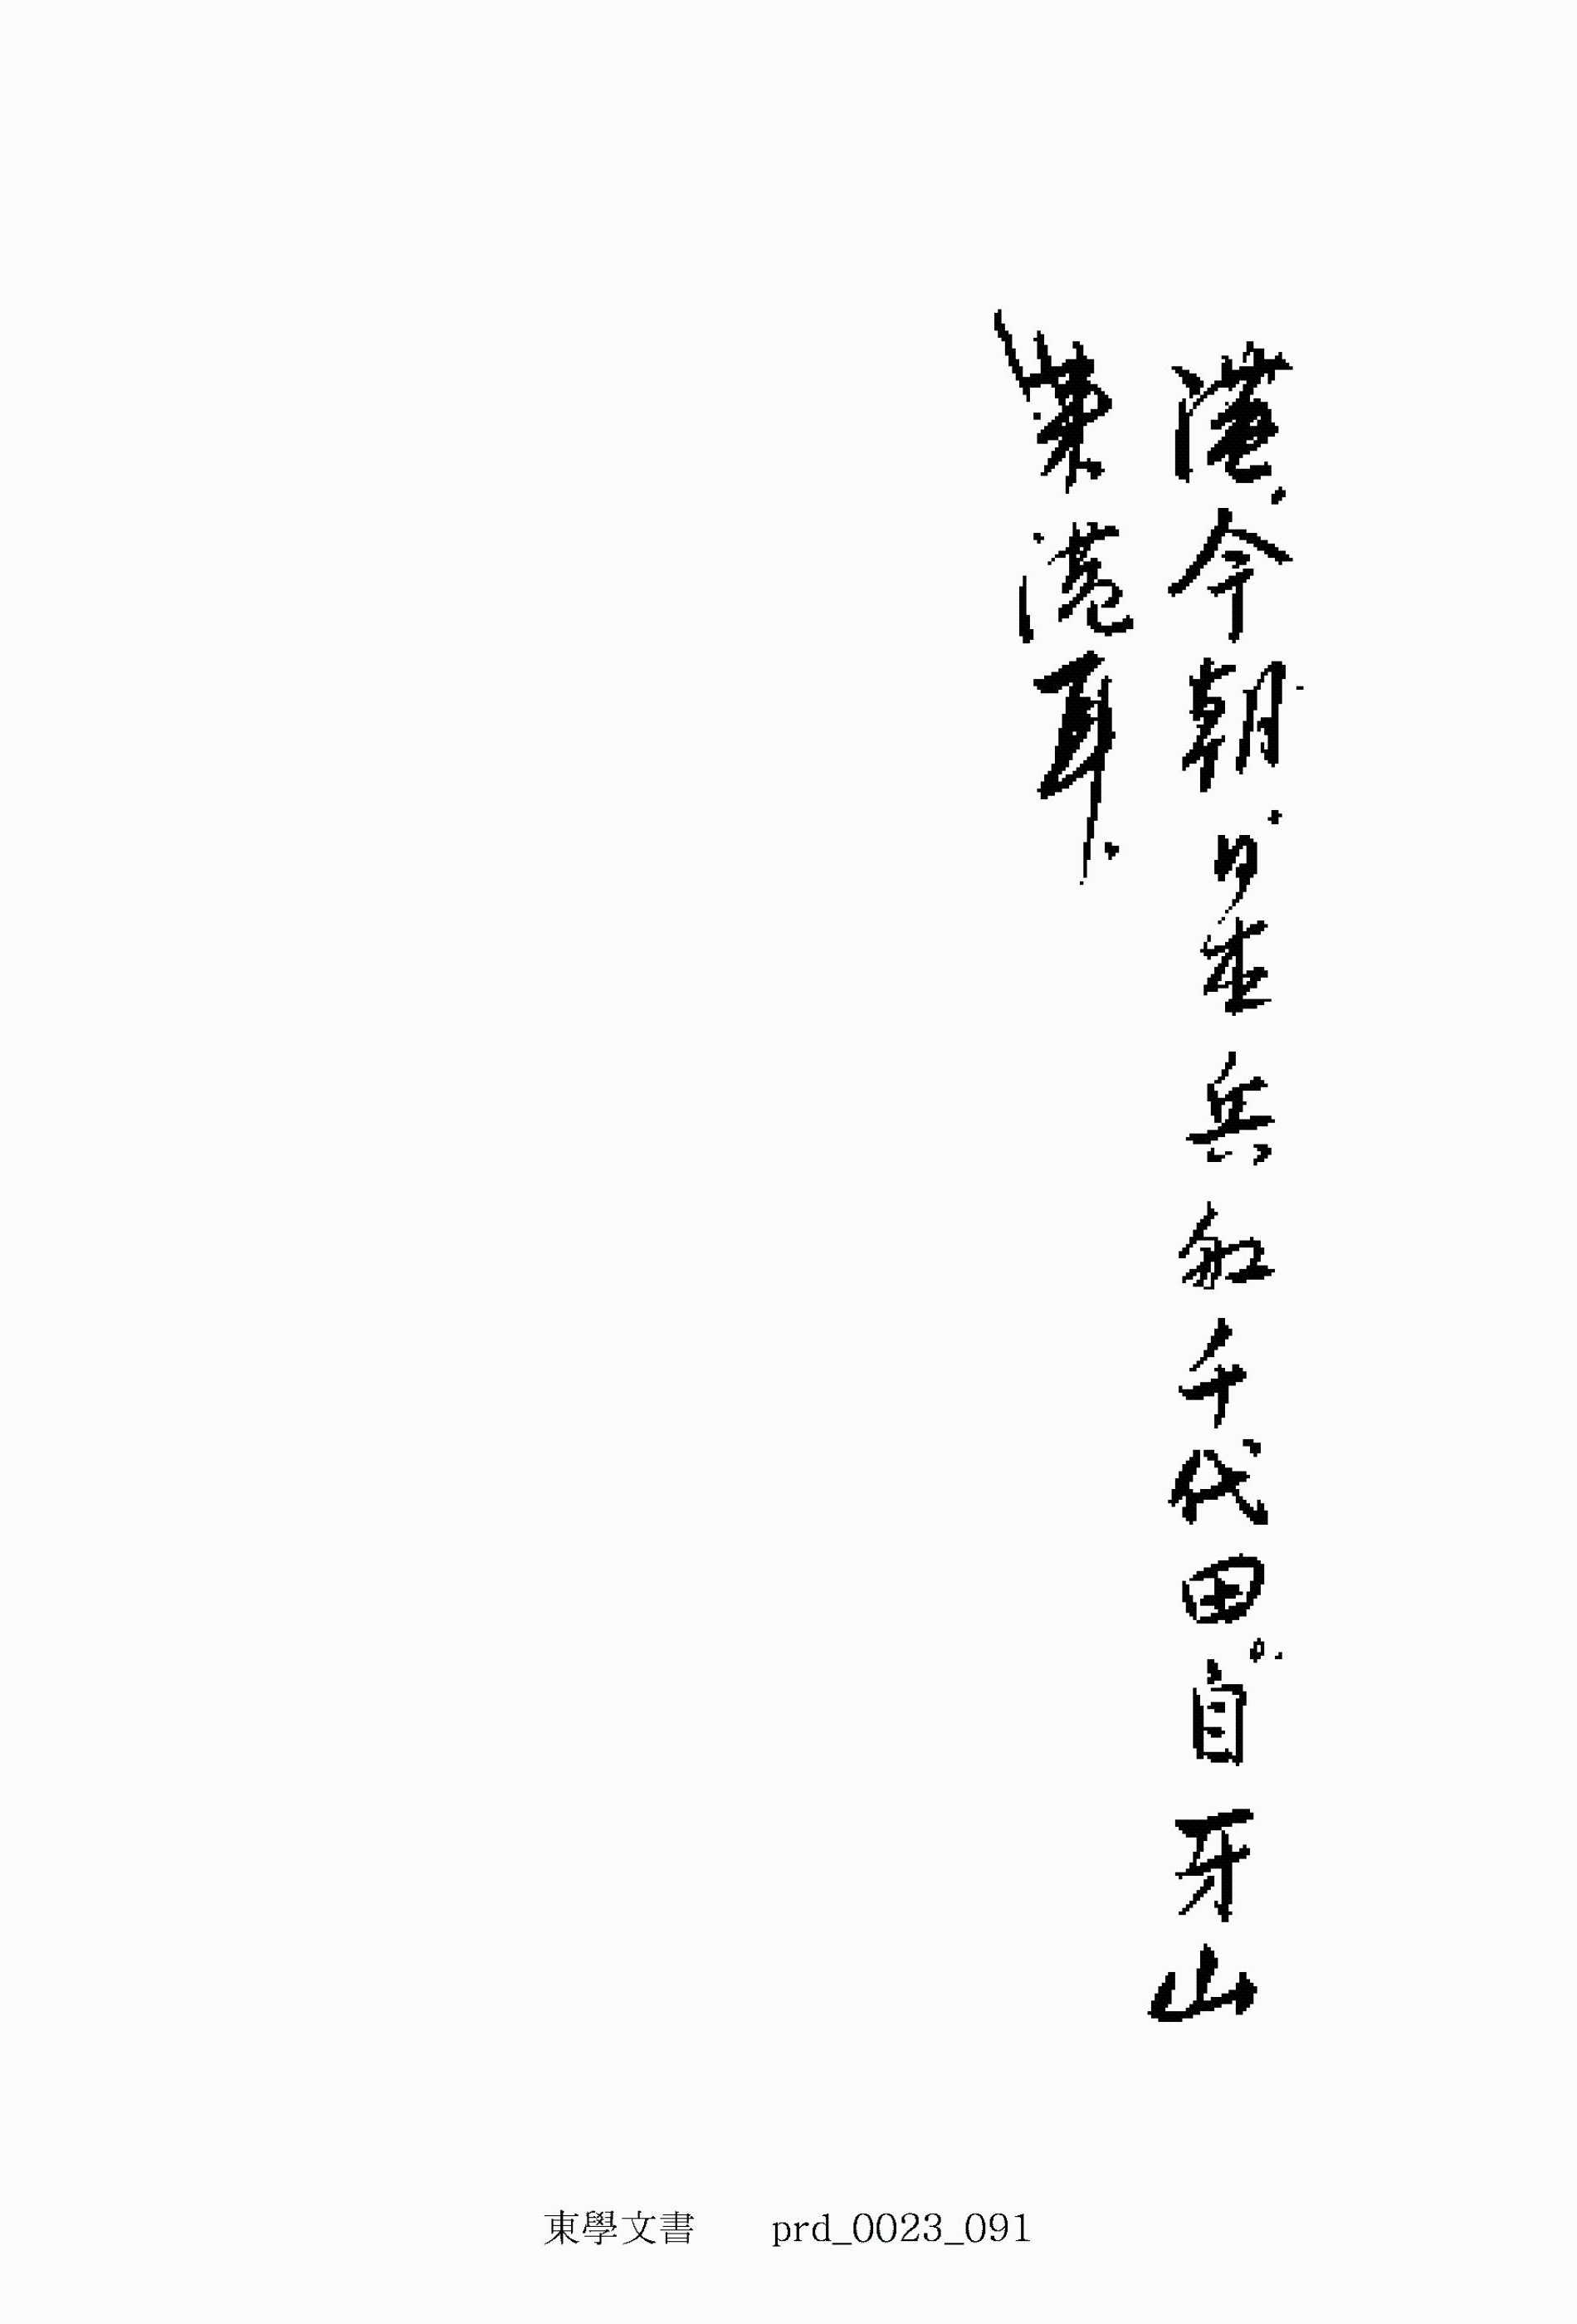 港今朝日本兵舡千代田自牙山
來港耳
東學文書 prd_0023_091